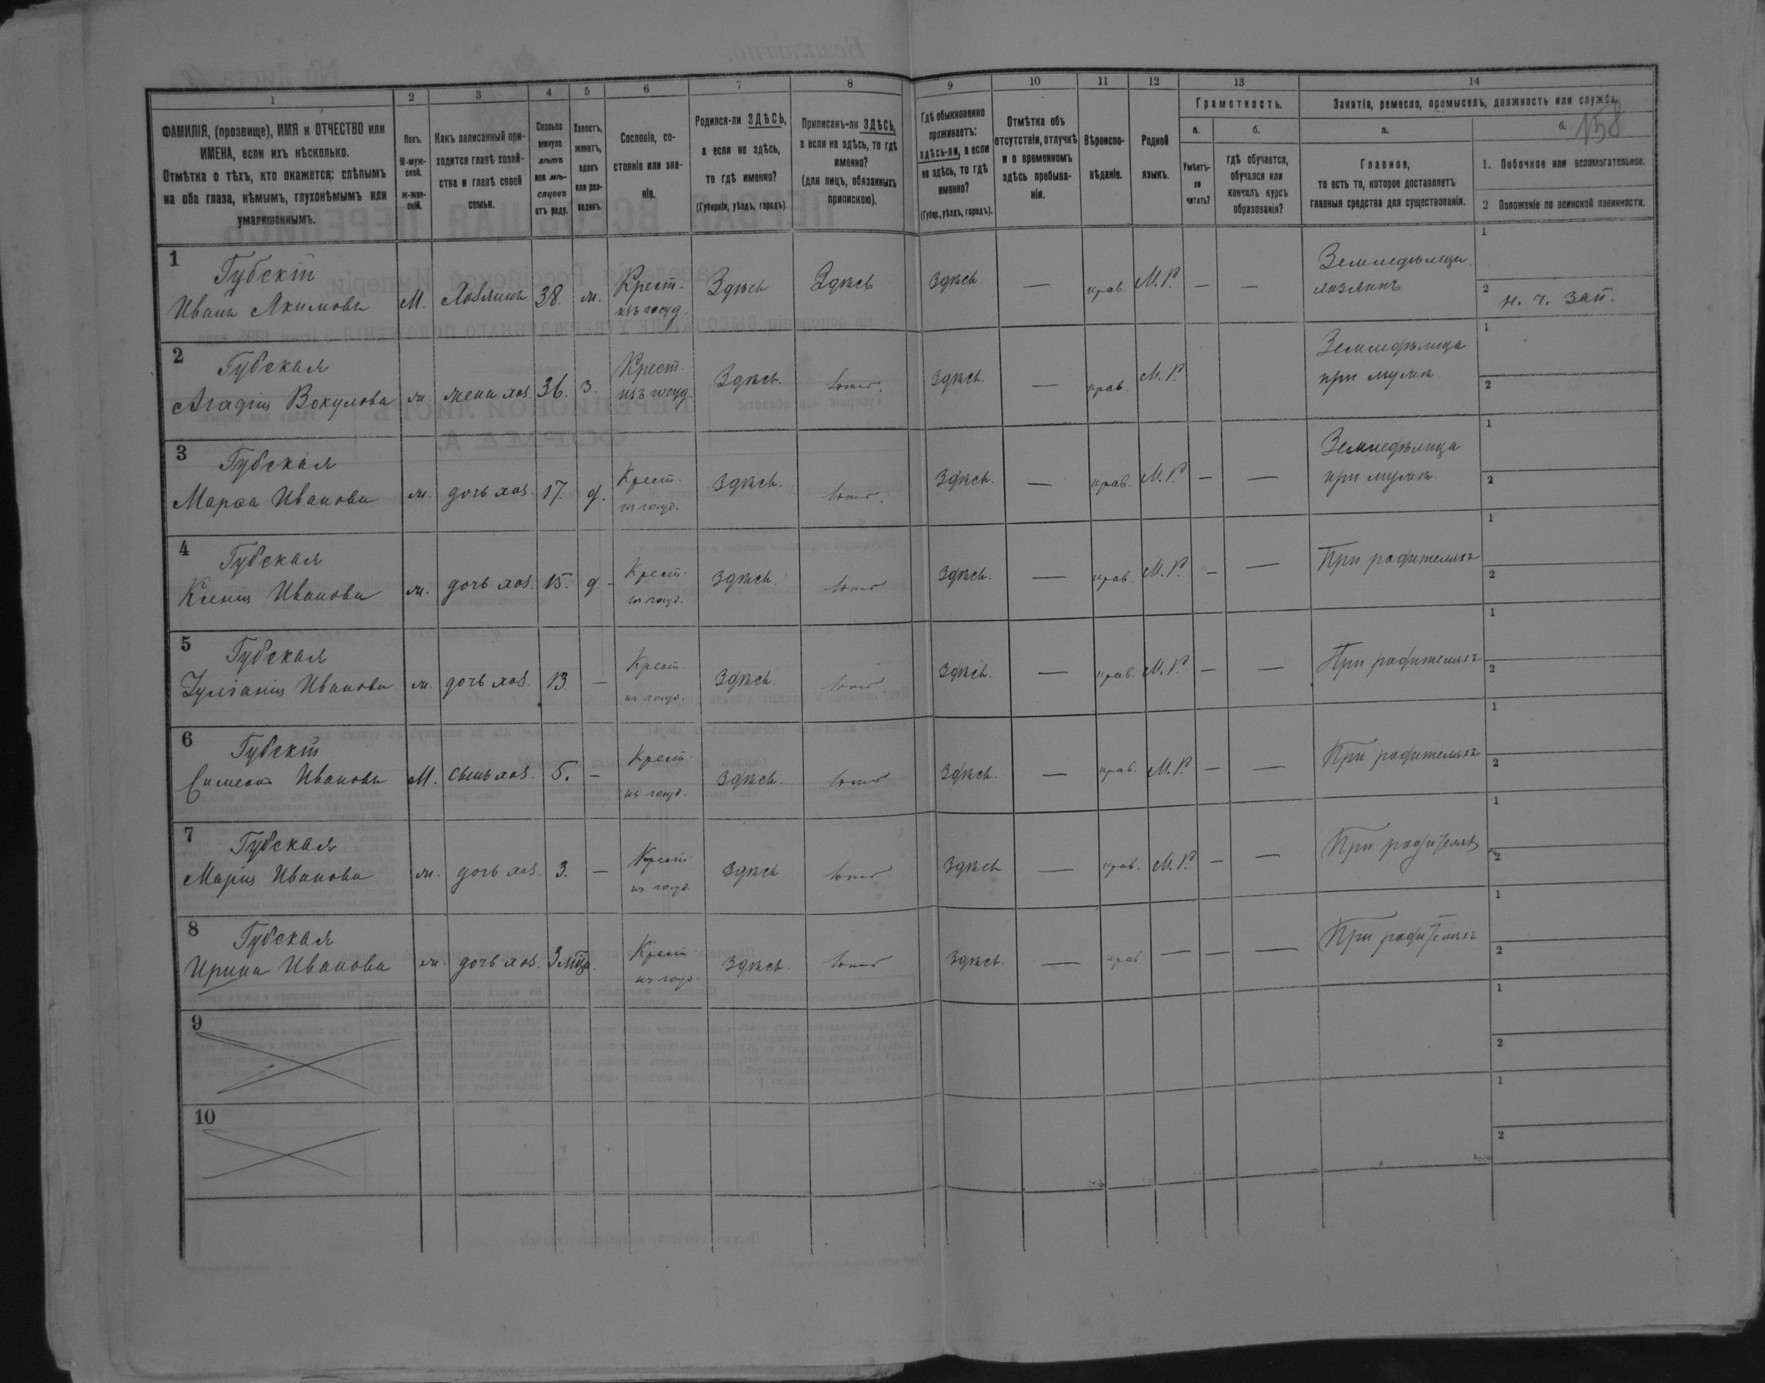 1 2 3 4 5 6 7 8 9 10 11 12 13 14
ФАМИЛІЯ, (прозвище), ИМЯ и ОТЧЕСТВО или
ИМЕНА, если ихъ нѣсколько.
Отмѣтка о тѣхъ, кто окажется: слѣпымъ
на оба глаза, нѣмымъ, глухонѣмымъ или
умалишоннымъ.
Полъ.
М-муж-
ской.
ж-жен-
скій.
Какъ записанный при-
ходится главѣ хозяй-
ства и главѣ своей
семьи.
Сколько
минуло
лѣтъ
или мѣ-
сяцевъ
отъ роду.
Холостъ,
женатъ,
вдовъ
или раз-
веденъ.
Сословіе, со-
стояніе или зва-
ніе.
Родился-ли ЗДѢСЬ,
а если не здѣсь,
то гдѣ именно?
(Губернія, уѣздъ, городъ).
Приписанъ-ли ЗДѢСЬ,
а если не здѣсь, то гдѣ
именно?
(для лицъ, обязанныхъ
припискою).
Гдѣ обыкновенно
проживаетъ:
здѣсь-ли, а если
не здѣсь, то гдѣ
именно?
(Губер., уѣздъ, городъ).
Отмѣтка объ
отсутствіи, отлучкѣ
и о временномъ
здѣсь пребыва-
ніи.
Вѣроиспо-
вѣданіе.
Родной
языкъ.
Грамотность.
а.
Умѣетъ-
ли
читать?
б.
гдѣ обучается,
обучался или
кончилъ курсъ
образованія?
Занятіе, ремесло, промыселъ, должность или служба.
а.
Главное,
то есть то, которое доставляетъ
главныя средства для существованія.
158
1. Побочное или вспомогательное.
2 Положеніе по воинской повинности.
1
Губскій
Иванъ Акимовъ М. Хозяинъ 38. ж. Крест. изъ госуд. Здѣсь Здѣсь Здѣсь — прав. М.Р. — — Земледѣлецъ хозяинъ
1
2 н. ч. зап.
2
Губская
Агафія Вокулова ж. жена хоз. 36. з. Крест. изъ госуд. Здѣсь. тоже. Здѣсь. — прав. М.Р. Земледѣлица при мужѣ
1
2
3
Губская
Марѳа Иванова ж. дочь хоз. 17. д. Крест. из госуд. Здѣсь. тоже. Здѣсь. — прав. М.Р. — — Земледѣлица при мужѣ
1
2
4
Губская
Ксенія Иванова ж. дочь хоз. 15. д. Крест. из госуд. Здѣсь. тоже Здѣсь. — прав. М.Р. — — При родителяхъ
1
2
5
Губская
Іуліанія Иванова ж. дочь хоз. 13. — Крест. из госуд. Здѣсь. тоже. Здѣсь. — прав. М.Р. — — При родителяхъ
1
2
6
Губскій
Симеонъ Ивановъ М. сынъ хоз. 5. — Крест. из госуд. Здѣсь. тоже Здѣсь. — прав. М.Р. — — При родителяхъ
1
2
7
Губская
Марія Иванова ж. дочь хоз. 3. — Крест. из госуд. Здѣсь. тоже Здѣсь — прав. М.Р. — — При родителяхъ
1
2
8
Губская
Ирина Иванова ж. дочь хоз. Крест. из госуд. Здѣсь. тоже Здѣсь. — прав. — — — При родителяхъ
1
2
9
1
2
10
1
2